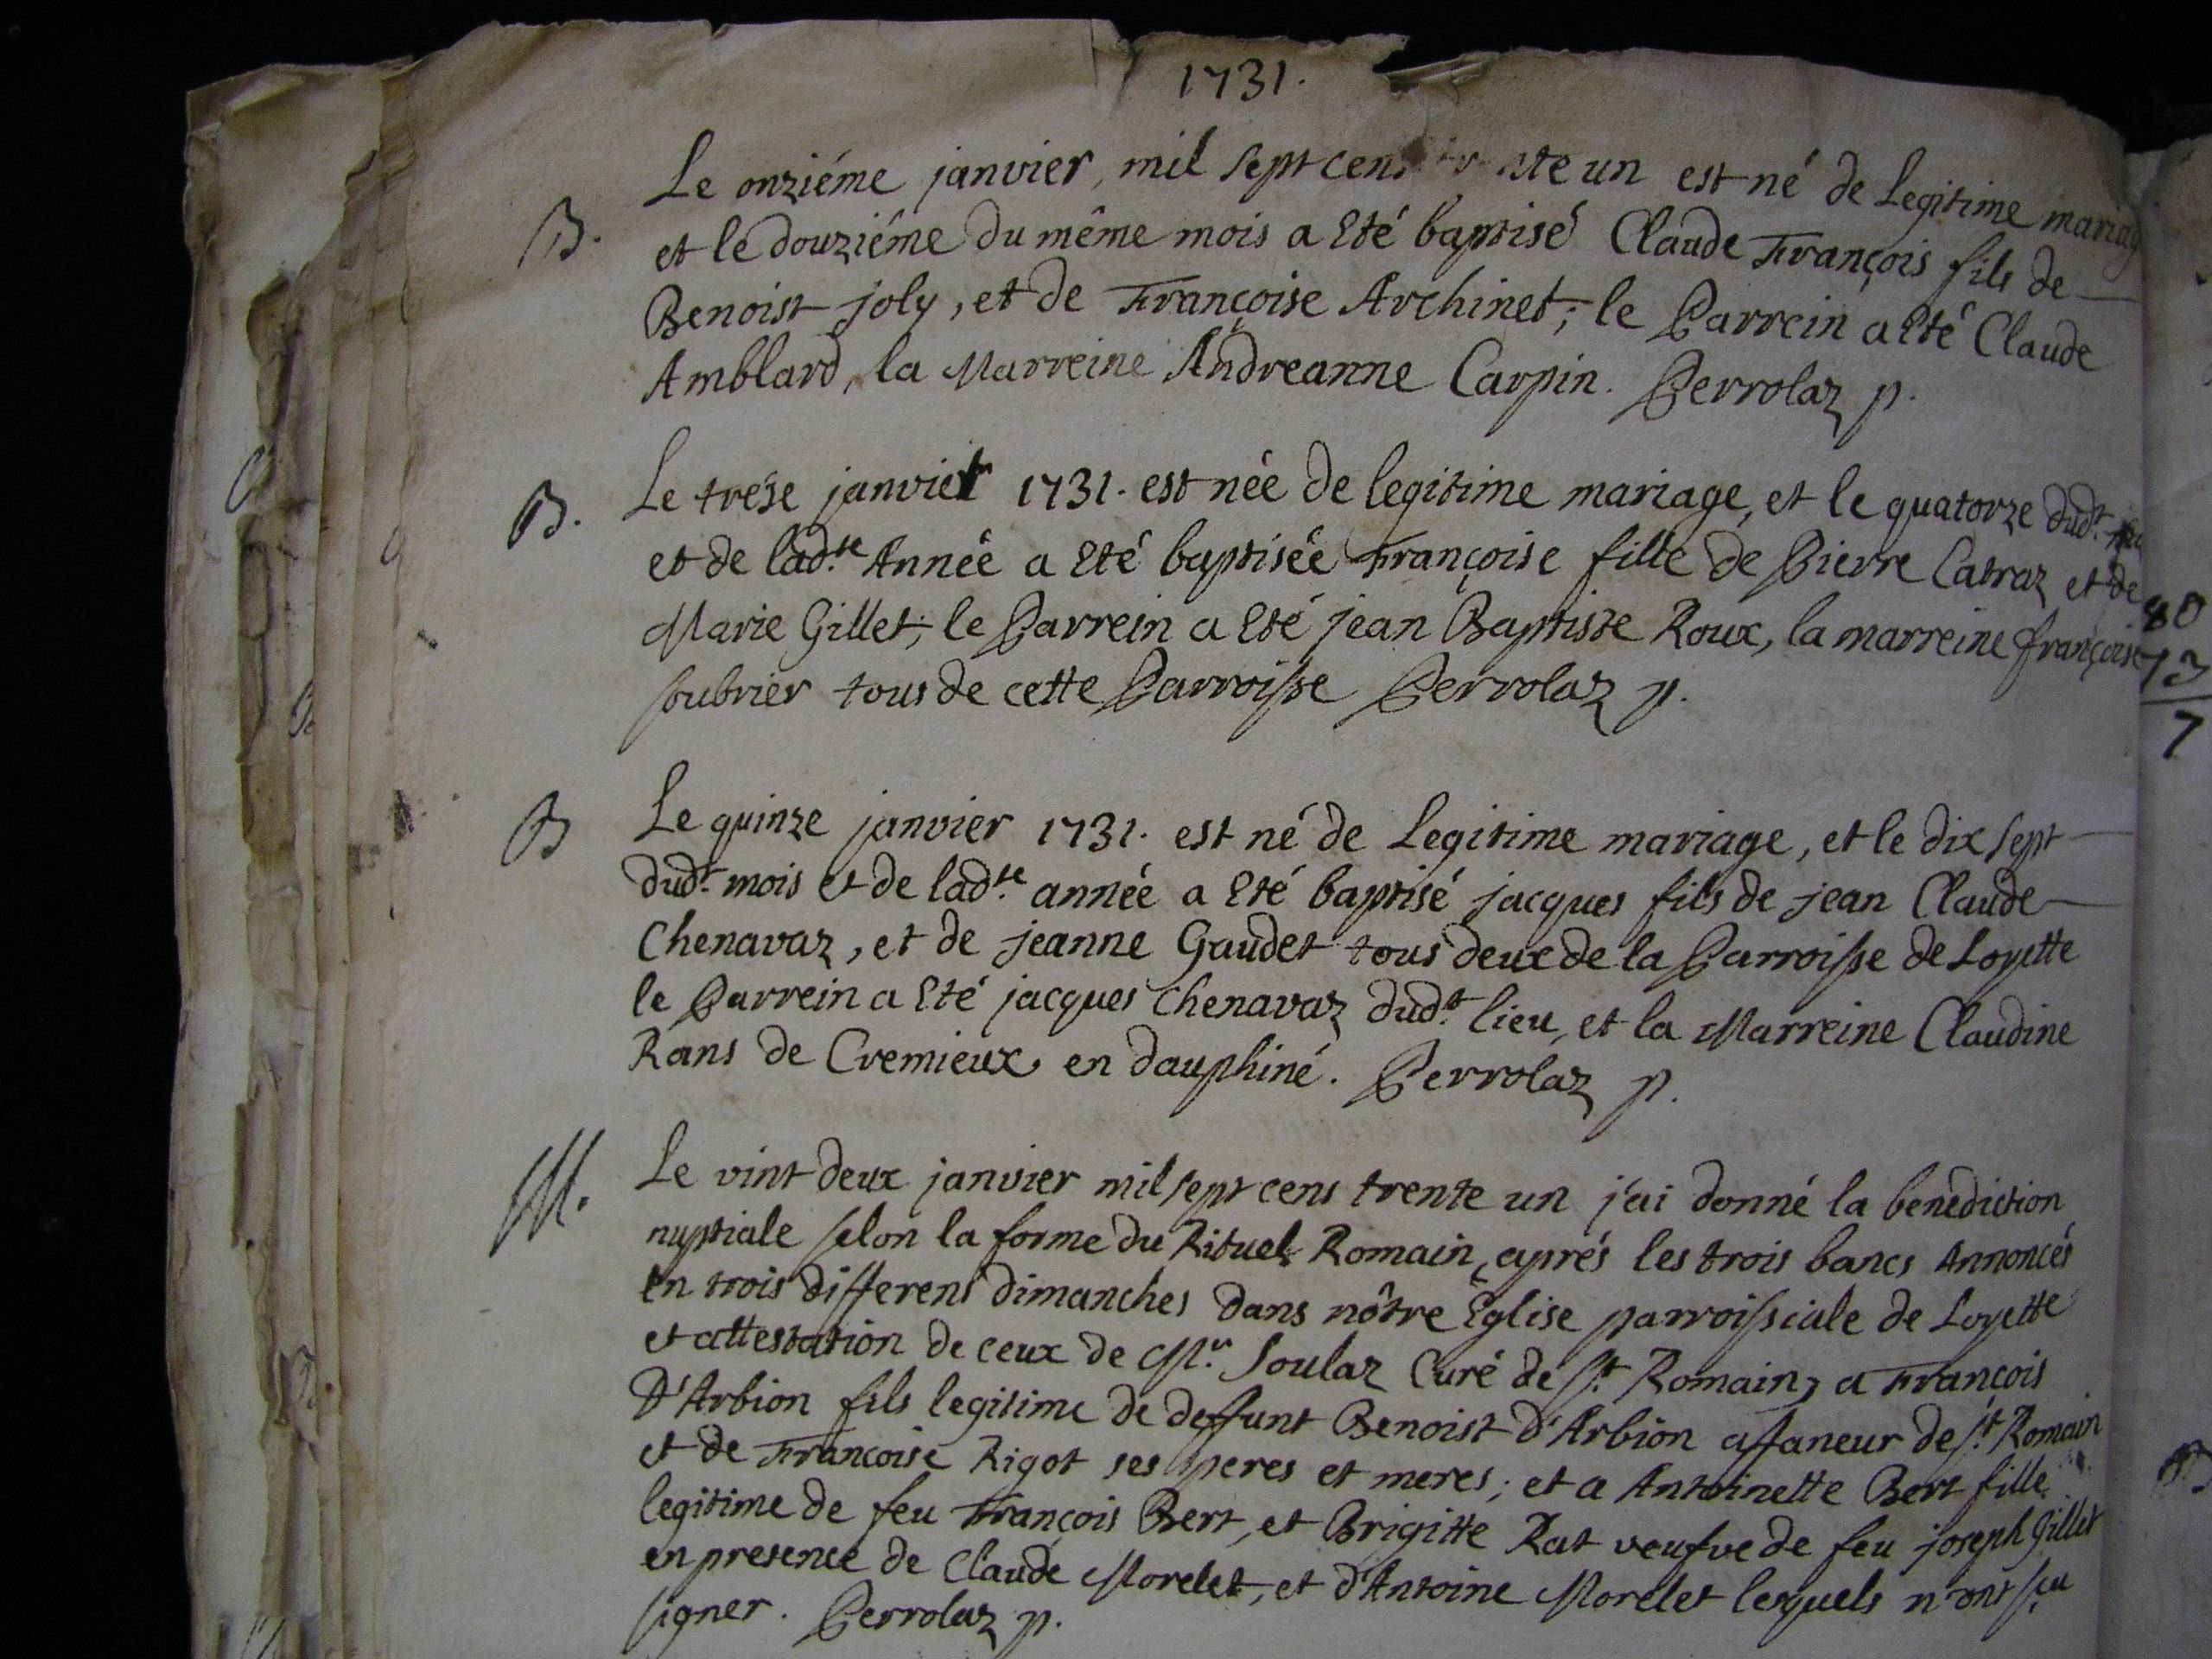 1731.
Le onziéme janvier, mil sept cens trente un est né de Legitime mariag
B. et le douziéme du même mois a eté baptisé Claude François fils de
Benoist joly, et de Françoise Archinet; le Parrein a eté Claude
Amblard, la Marreine Andreanne Carpin. Perrolaz p.
B. Le trése janvier 1731. est née de legitime mariage, et le quatorze dud.t
et de lad.te Année a eté baptisée Françoise fille de Pierre Catraz et de
Marie Gillet; le Parrein a eté jean Baptiste Roux, la marreine françoise
soubrier tous de cette Parroisse Perrolaz p.
80
73
7
B Le quinze janvier 1731. est né de Legitime mariage, et le dix sept
dud.t mois et de lad.te année a eté baptisé jacques fils de jean Claude
Chenavaz, et de jeanne Gaudet tous deux de la Parroisse de Loyette
le Parrein a eté jacques Chenavaz dud.t lieu, et la Marreine Claudine
Rans de Cremieux en dauphiné. Perrolaz p.
M. Le vint deux janvier mil sept cens trente un j'ai donné la benediction
nuptiale selon la forme du Rituel Romain, aprés les trois bancs Annoncés
en trois differens dimanches dans nôtre Eglise parroissiale de Loyette
et attestation de ceux de M.r Soulaz Curé de S.t Romain, a François
D'Arbion fils legitime de deffunt Benoist d'Arbion affaneur de S.t Romain
et de Francoise Rigot ses peres et meres; et a Antoinette Bert fille
legitime de feu François Bert, et Brigitte Rat veufve de feu joseph Gillet
en presence de Claude Morelet, et d'Antoine Morelet lesquels n'ont sçu
signer. Perrolaz p.